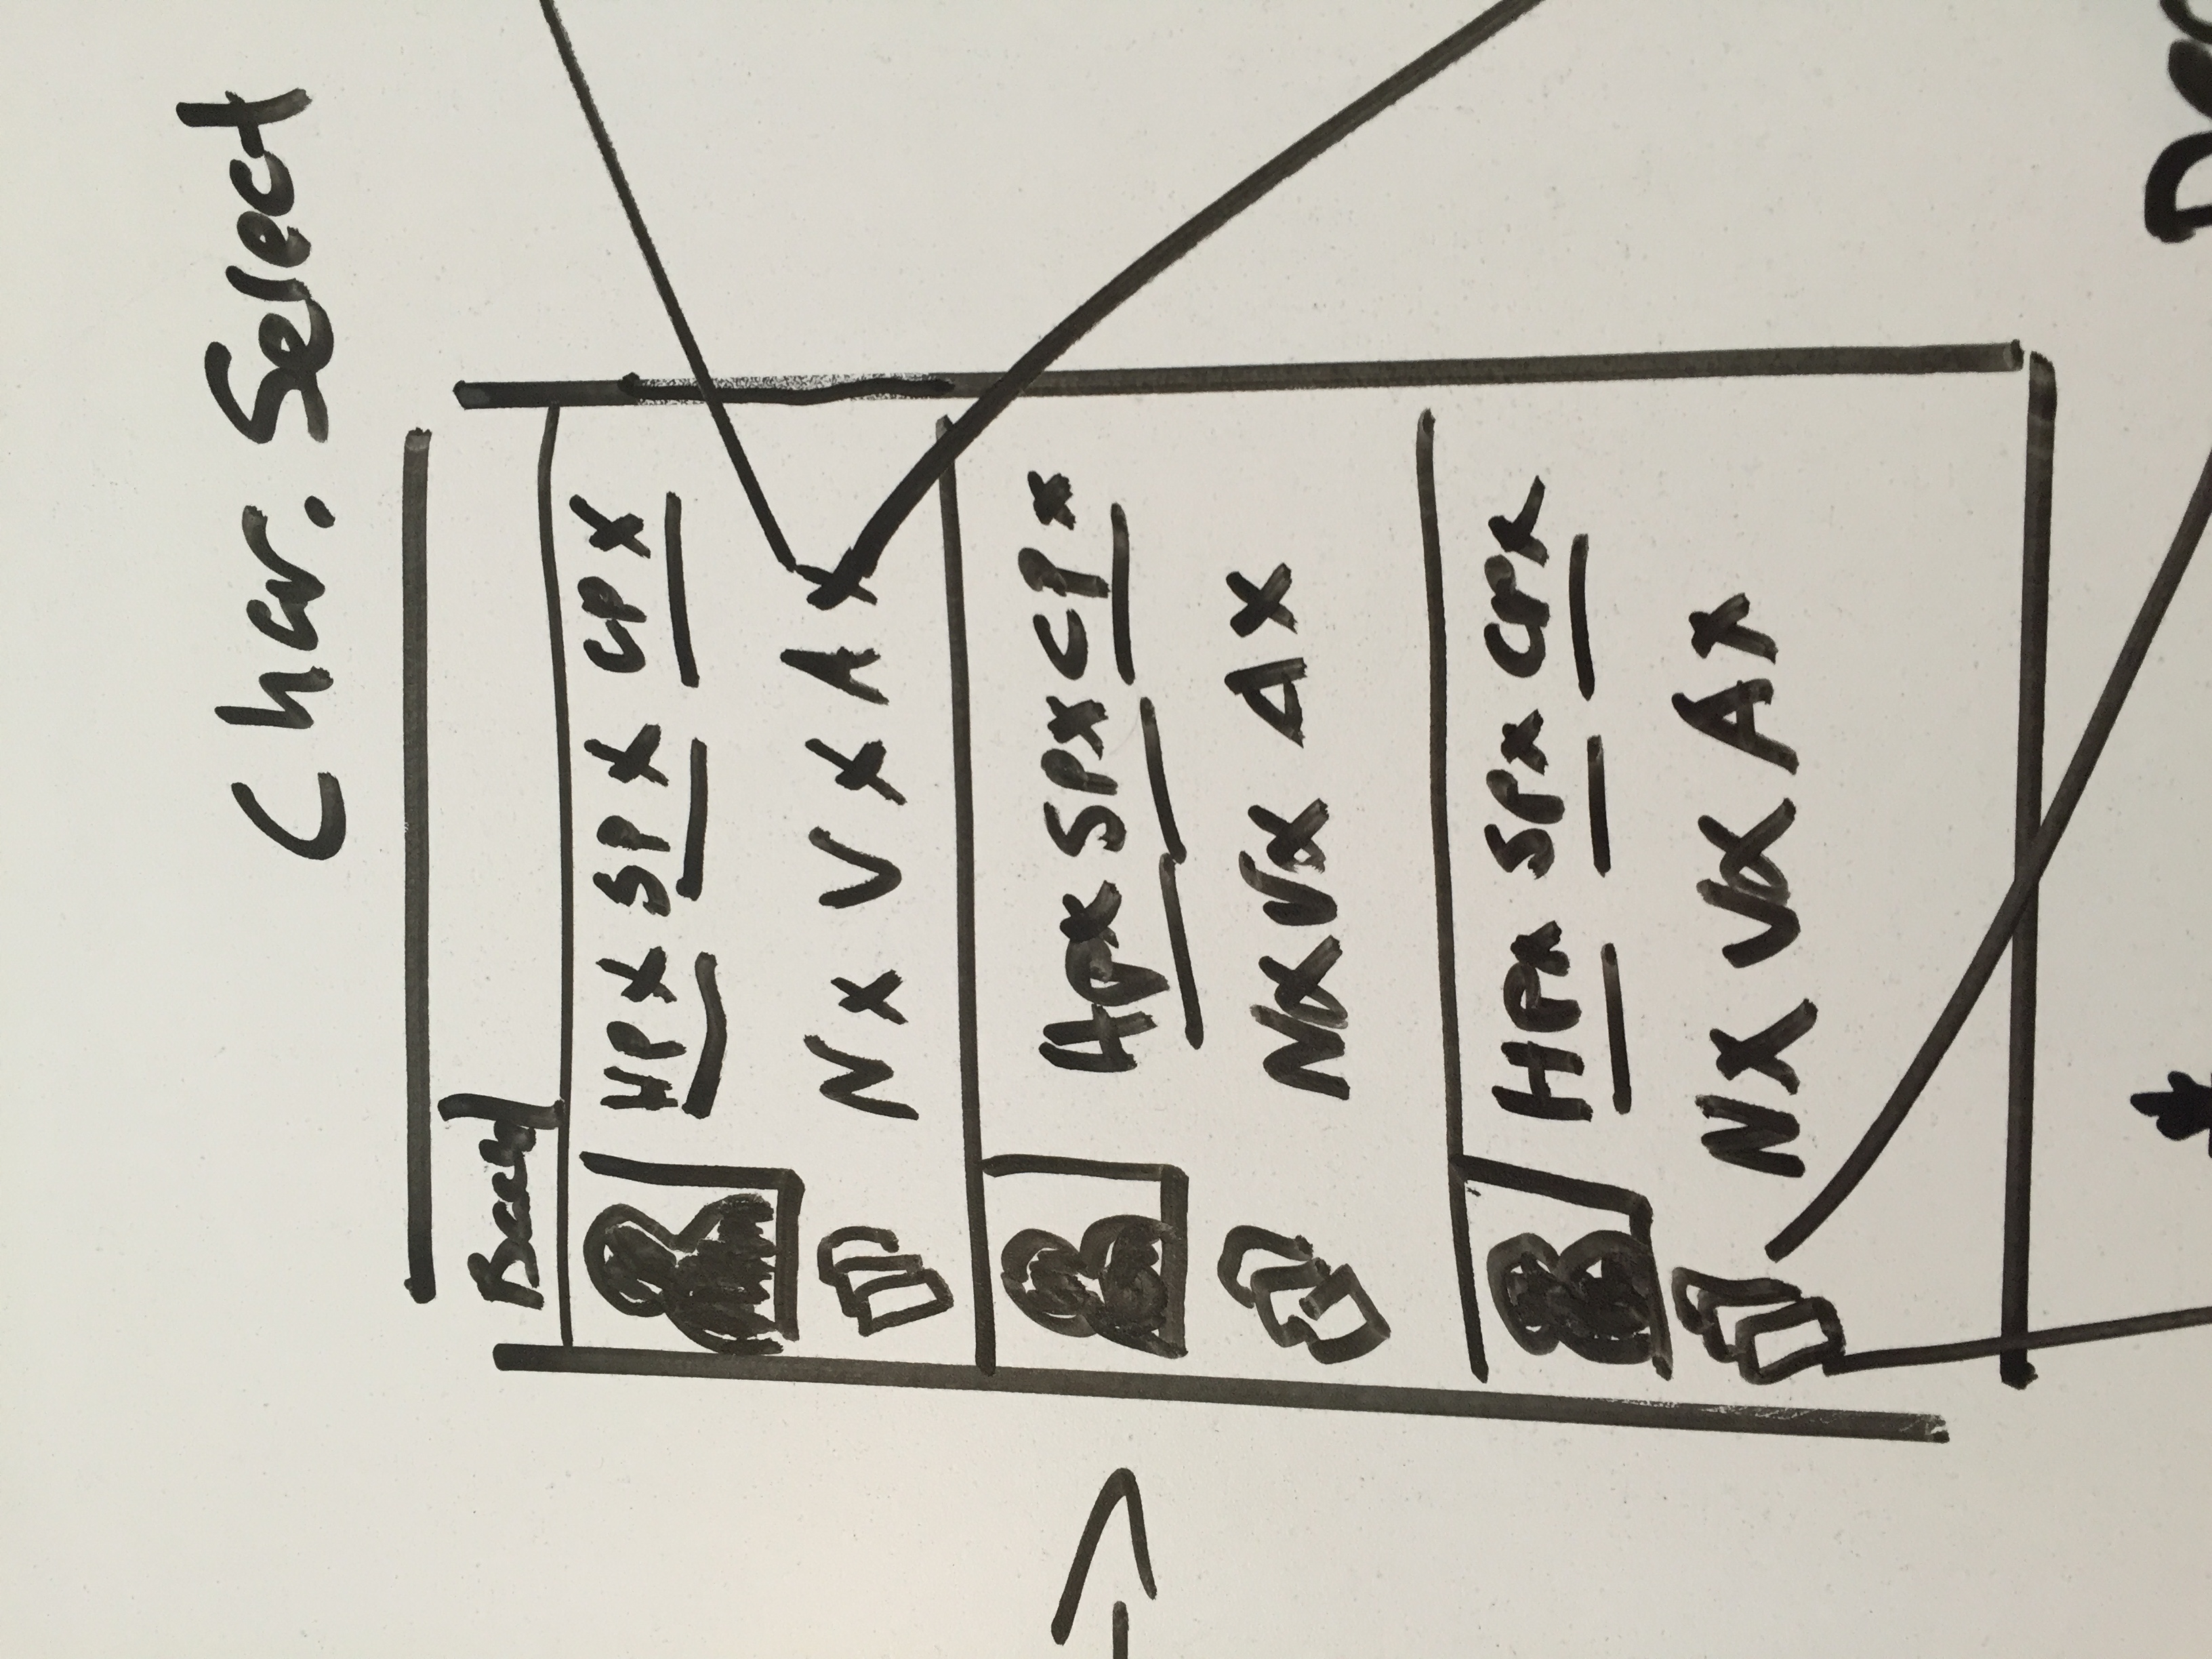 Char. Select
Back
HP X SP X CP X
N X V X A X
HP X SP X CP X
N X V X A X
HP X SP X CP X
N X V X A X